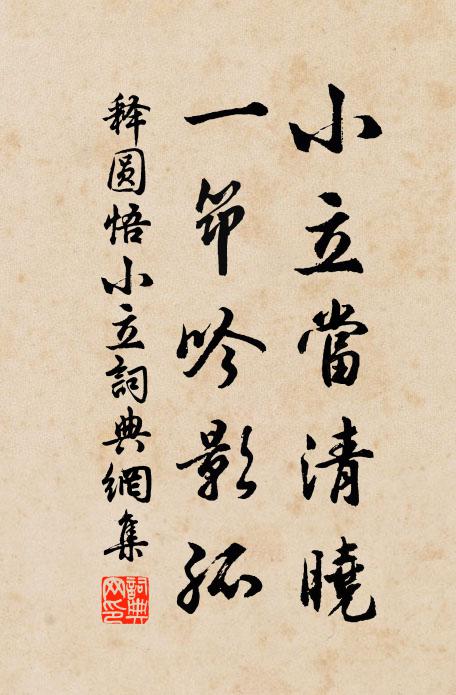 小立當清曉
一筇吟影孤
释圆悟小立詞典網集
詞典網印